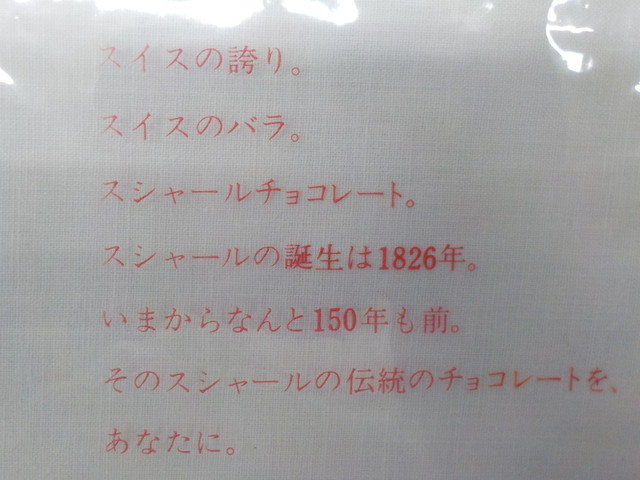 スイスの誇り。
スイスのバラ。
スシャールチョコレート。
スシャールの誕生は1826年。
いまからなんと150年も前。
そのスシャールの伝統のチョコレートを、
あなたに。